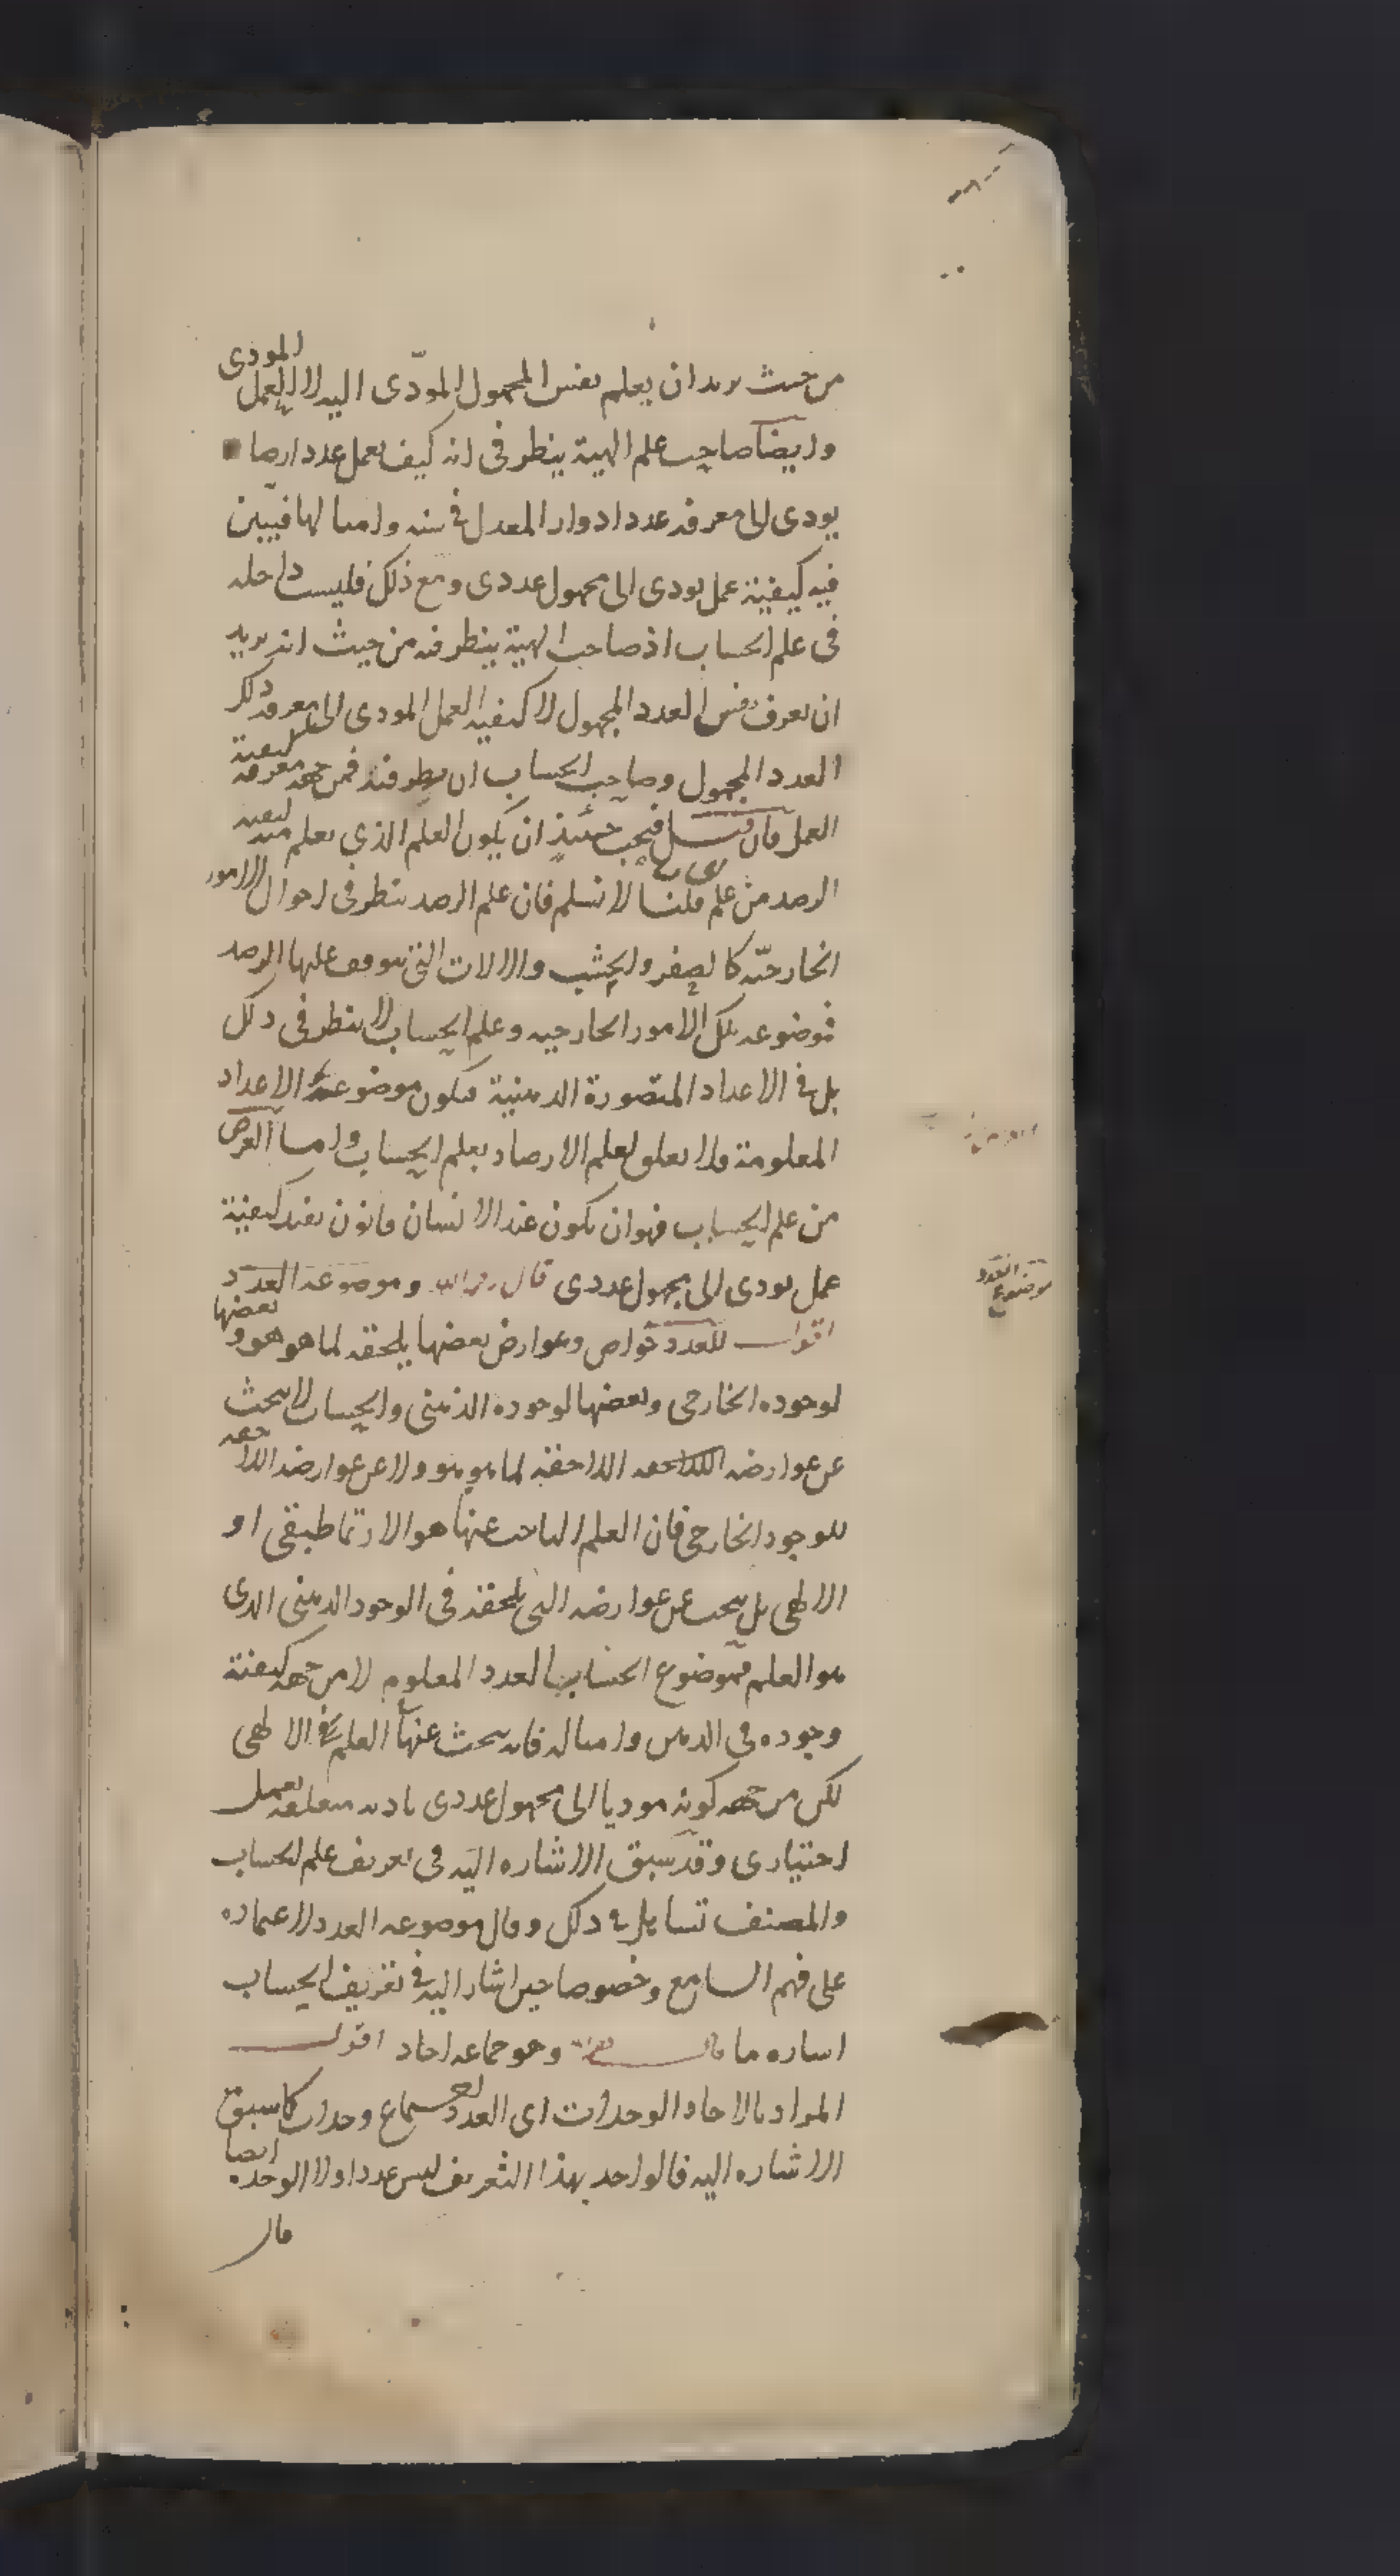 من حيث يريد ان يعلم نفس المجهول المودّى اليه لا العمل المودى
وايضا صاحب علم الهية ينظر فى انه كيف يعمل عدد ارصاد
يودى الى معرفه عدد ادوار المعدل فى سنه وامثالها فيبين
فيه كيفية عمل يودى الى مجهول عددى ومع ذلك فليست داخله
فى علم الحساب اذ صاحب الهية ينظر فيه من حيث انه يريد
ان يعرف نفس العدد المجهول لا كيفيه العمل المودى الى معرفه ذلك
العدد المجهول وصاحب الحساب ان نظر فيه فمن جهه معرفه كيفية
العمل فان قيل فيجب حينئذ ان يكون العلم الذي يعلم منه كيفيه
الرصد من علم قلنا لا نسلم فان علم الرصد ينظر فى احوال الامور
الخارجيّه كالصفر والخشب والالات التى يتوقف عليها الرصد
فموضوعه تلك الامور الخارجيه وعلم الحساب لا ينظر فى ذلك
بل فى الاعداد المتصورة الذهنية فيكون موضوعه الاعداد
المعلومة ولا تعلق لعلم الارصاد بعلم الحساب واما الغرض
من علم الحساب فهو ان يكون عند الانسان قانون يفيد كيفية
عمل يودى الى مجهول عددى قال وموضوعه العدد
اقول للعدد خواص وعوارض بعضها يلحقه لما هو هو وبعضها
لوجوده الخارجى وبعضها لوجوده الذهنى والحساب لا يبحث
عن عوارضه اللاحقه لما هو هو ولا عن عوارضه اللاحقه
للوجود الخارجى فان العلم الباحث عنها هو الارثماطيقى او
الالهى بل يبحث عن عوارضه التى تلحقه فى الوجود الذهنى الذى
هو العلم فموضوع الحساب العدد المعلوم لا من جهه كيفية
وجوده فى الذهن وامثاله فانه يبحث عنها العلم الالهى
لكن من جهه كونه موديا الى مجهول عددى تاديه متعلقه بعمل
اختيارى وقد سبق الاشاره اليه فى تعريف علم الحساب
والمصنف تساهل فى ذلك وقال موضوعه العدد لاعتماده
على فهم السامع وخصوصا حين اشار اليه فى تعريف الحساب
اشاره ما قال وهو جماعه احاد اقول
المراد بالاحاد الوحدات اى العدد اجتماع وحدات كما سبق
الاشاره اليه فالواحد بهذا التعريف ليس عددا ولا الوحده ايضا
قال
موضوع العدد